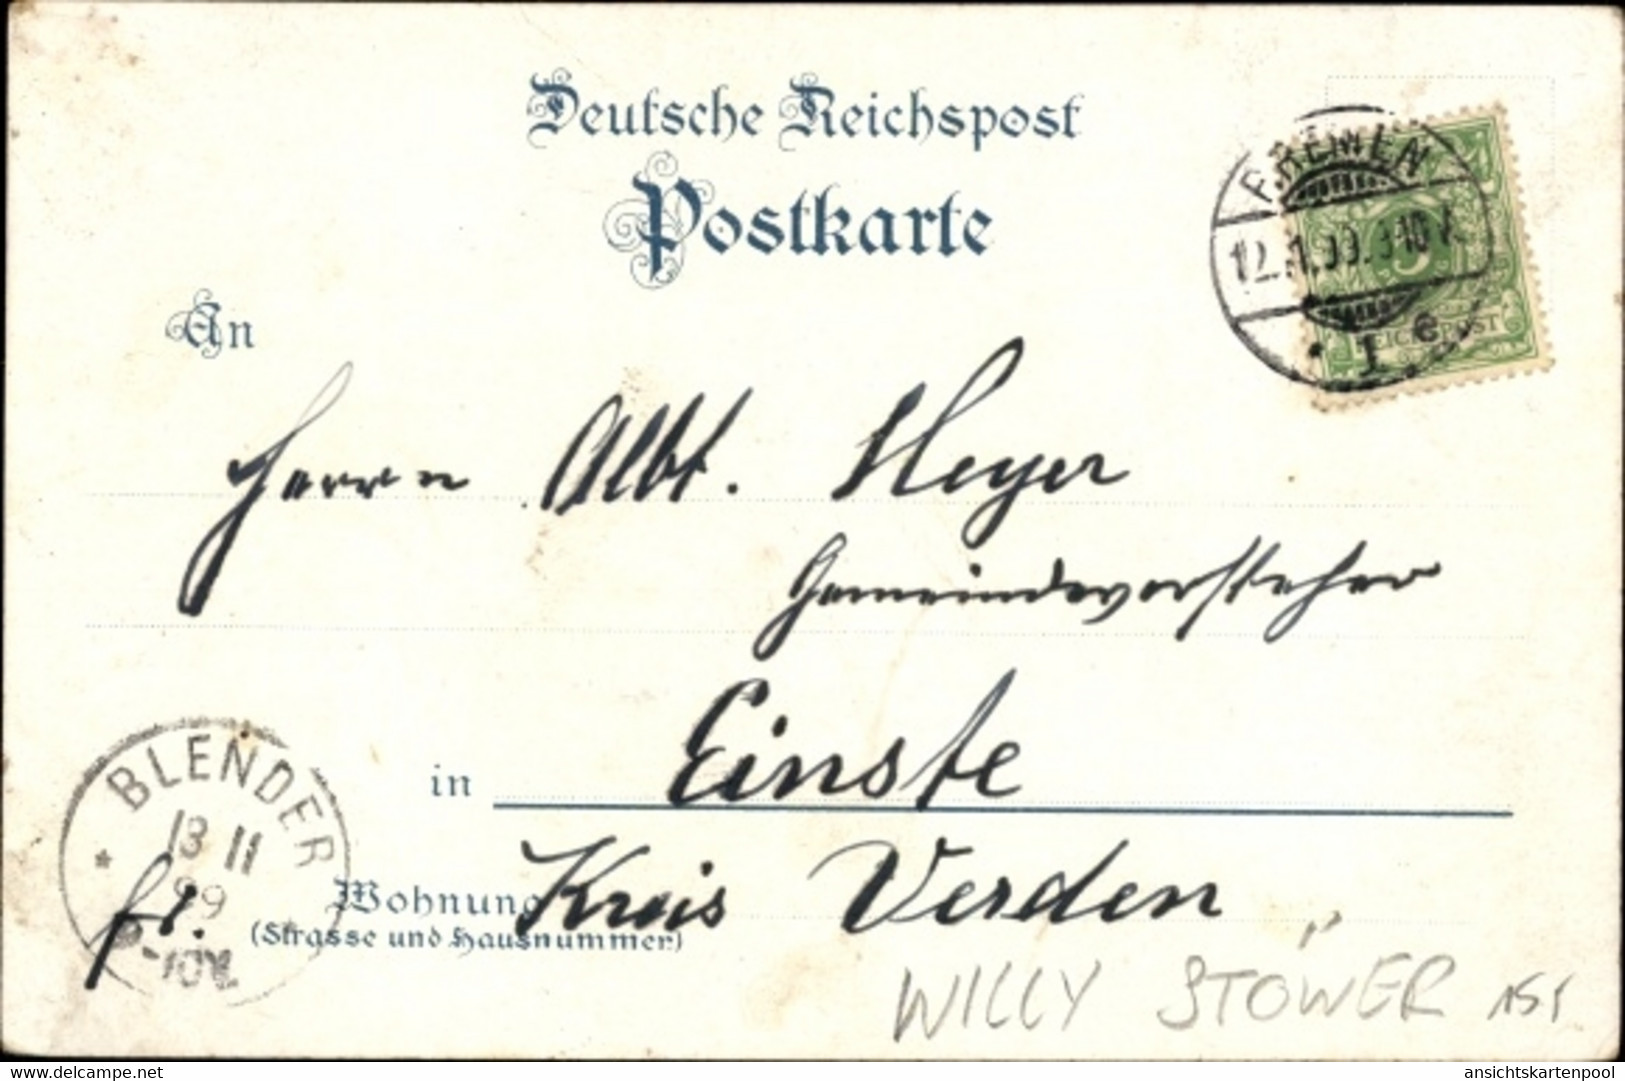 Deutsche Reichspost
Postkarte
BREMEN
12.11.99. 9-10 V.
1 e
5
REICHSPOST
An
Herrn Albt. Meyer
Gemeindevorsteher
in Einste
Kreis Verden
BLENDER
13 11
99
fr.
Wohnung
(Strasse und Hausnummer)
WILLY STÖWER 15,-
delcampe.net
ansichtskartenpool